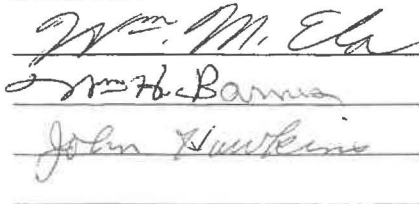 Wm. M. Ela
Wm H. Barnes
John Hawkins